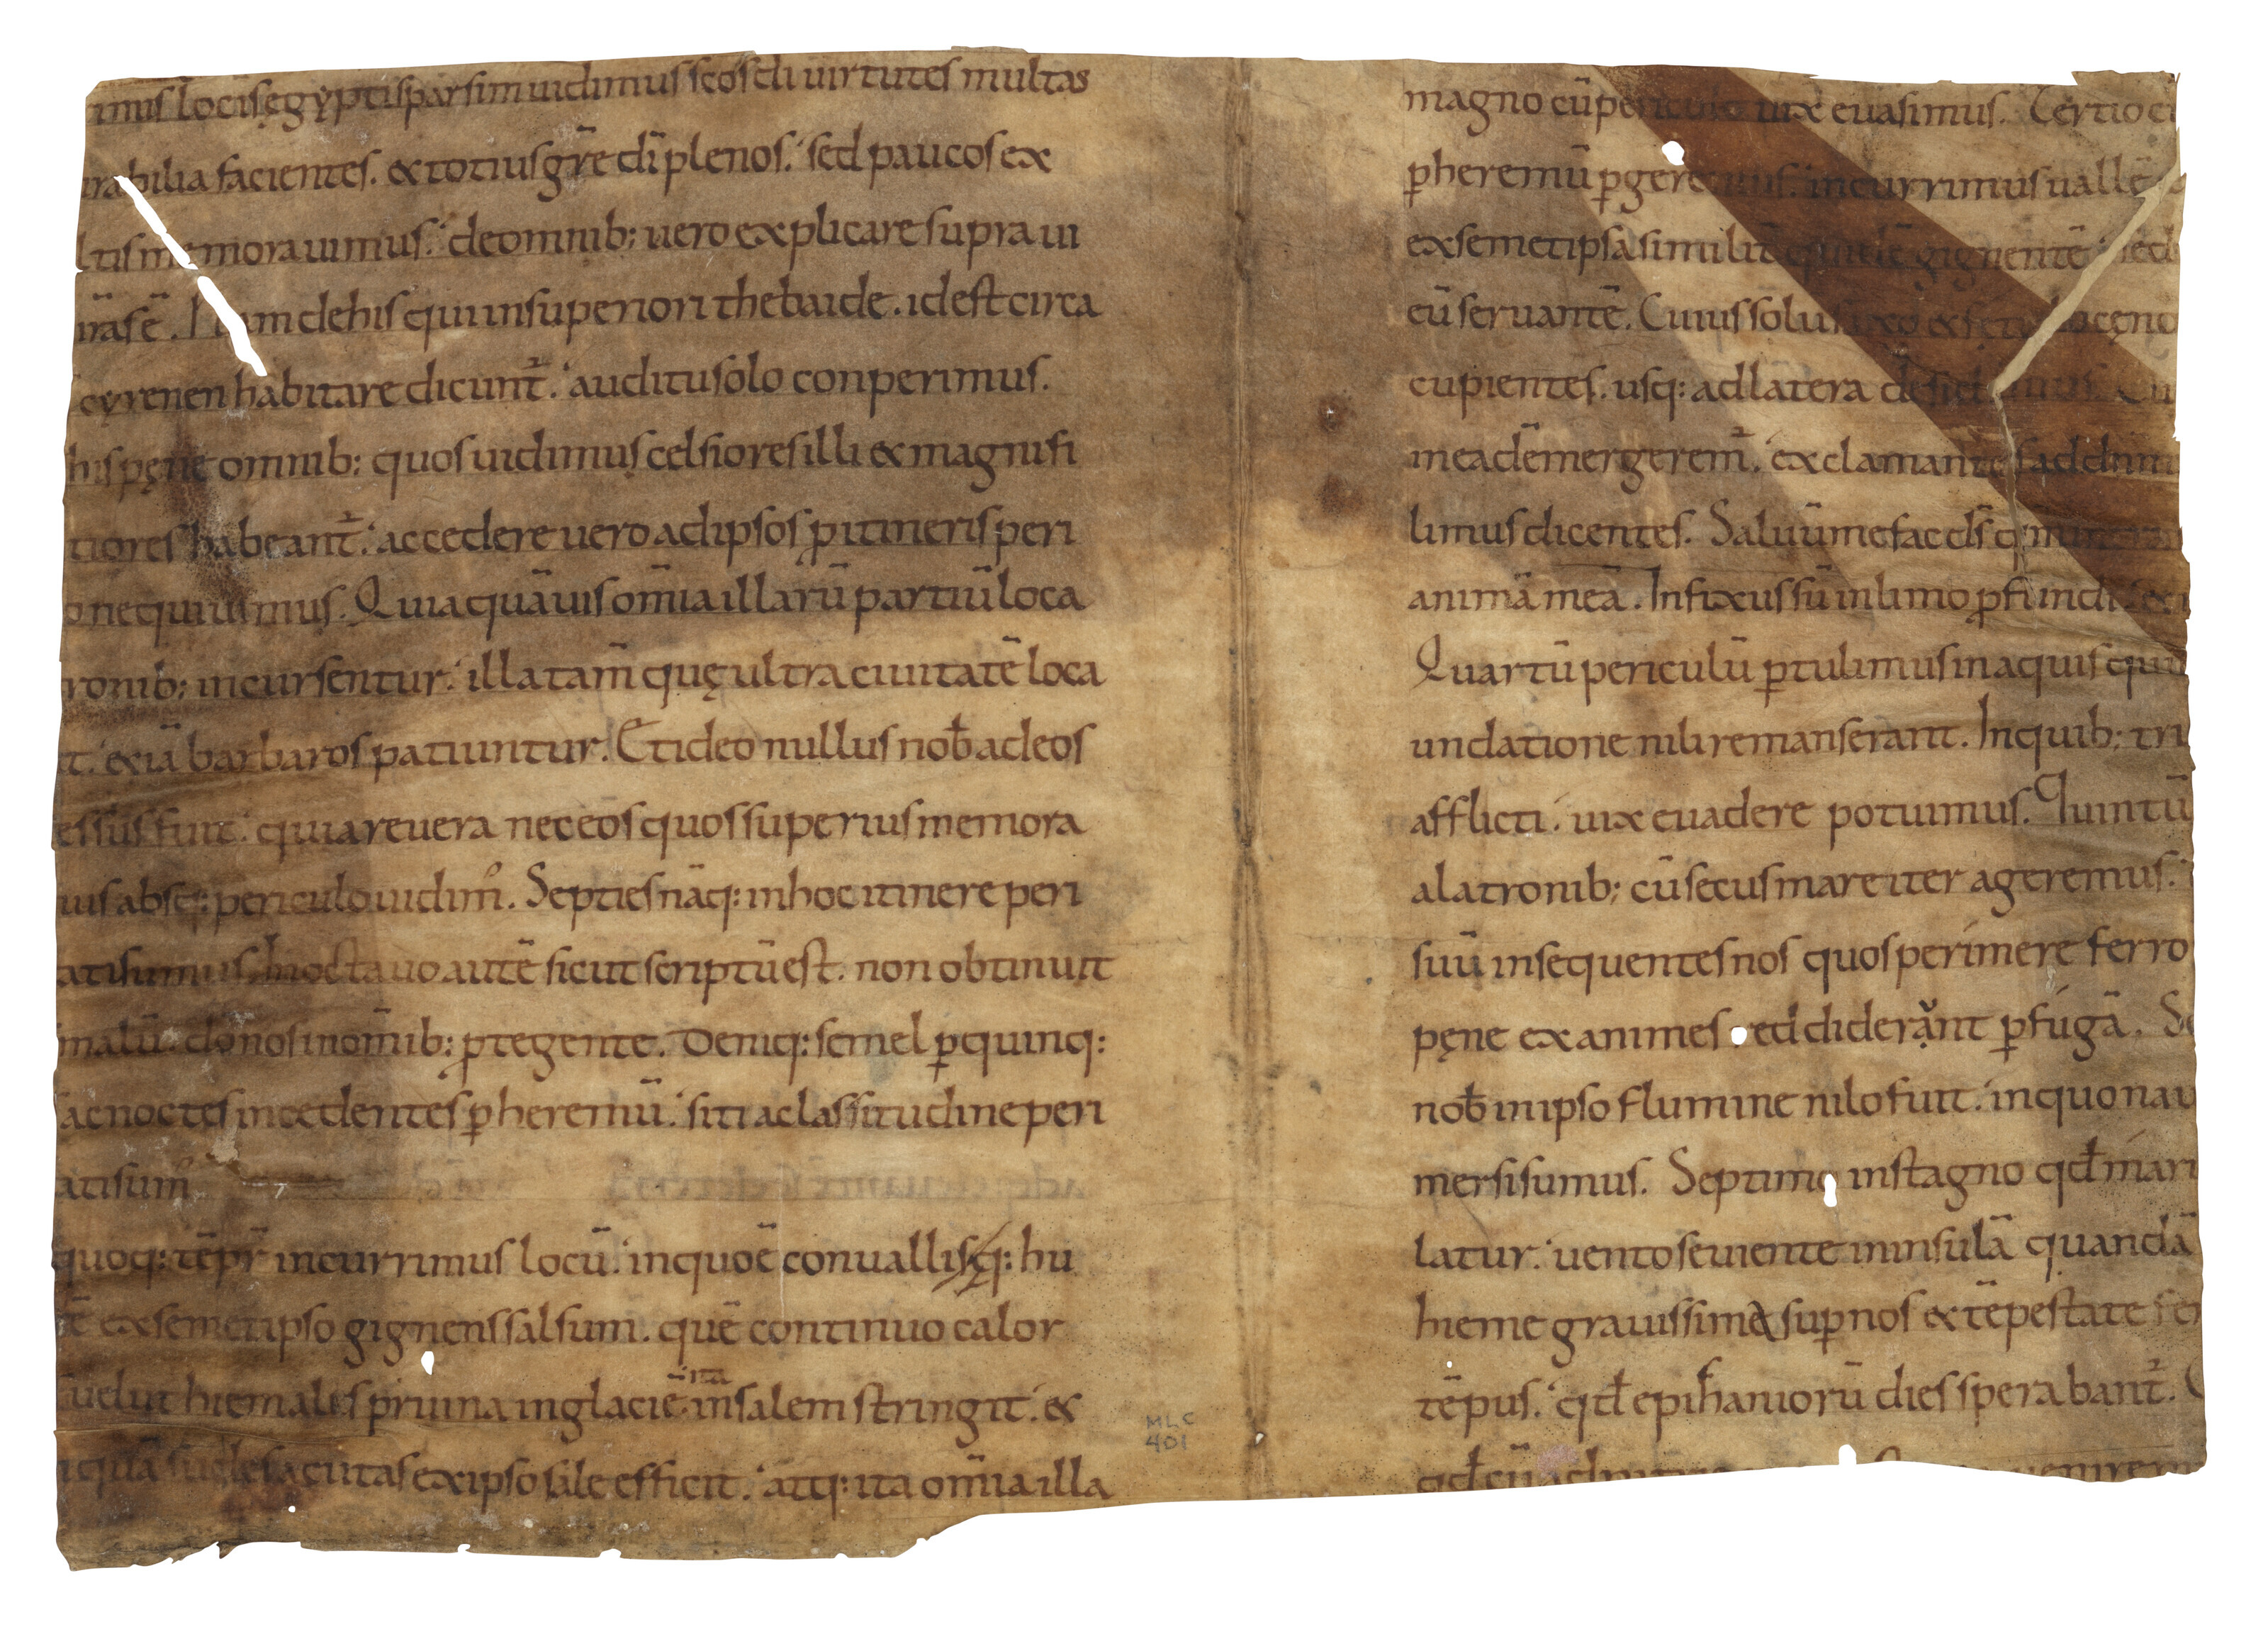 imis locis ęgypti sparsim uidimus scos di uirtutes multas
irabilia facientes. & totius gr̄e dī plenos. sed paucos ex
ltis memorauimus. de omnib; uero explicare supra ui
ir̄as ē. de his qui in superiori thebaide. id est circa
cyrenen habitare dicunt᷑. auditu solo conperimus.
his pęne omnib; quos uidimus celsiores illi & magnifi
tiores habeant᷑. accedere uero ad ipsos ꝓ itineris peri
o nequiuimus. Quia quāuis om̄ia illarū partiū loca
ronib; incursentur. illa tam̄ quę ultra ciuitatē loca
t. &iā barbaros patiuntur. Et ideo nullus nob̄ ad eos
essus fuit. quia reuera nec eos quos superius memora
uis absq: periculo uidim᷒. Septies nāq: in hoc itinere peri
ati sumus. In octauo autē sicut scriptū est. non obtinuit
malū. dō nos in om̄ib; ꝓtegente. Deniq: semel ꝑ quinq:
ac noctes incedentes ꝑ heremū. siti ac lassitudine peri
ati sum᷒
quoq: tēpr̄ incurrimus locū. in quo ē conuallis q: hu
tē ex semetipso gignens salsum. quē continuo calor
uelut hiemalis pruina in glaciē ita in salem stringit. &
quā sudes acutas ex ipso sale efficit. atq: ita om̄ia illa
magno cū periculo uix euasimus. Tertio
ꝑ heremū ꝑgeremus. incurrimus uallē
ex semetipsa similit̄ gignentē
eū seruantē. Cuius
cupientes. usq: ad latera
in eadē mergerem᷑. exclamantes ad dnm
limus dicentes. Saluū me fac ds̄ qm̄
animā meā. Infixus sū in limo ꝓfundi
Quartū periculū ꝑtulimus in aquis
undatione nili remanserant. In quib; tri
afflicti. uix euadere potuimus. Quintū
a latronib; cū secus mare iter ageremus.
suū insequentes nos quos perimere ferro
pęne exanimes reddiderant ꝑ fugā. Se
nob̄ in ipso flumine nilo fuit. in quo nau
mersi sumus. Septimo in stagno qd̄ mari
latur. uento seuiente in insulā quandā
hieme grauissima suꝑ nos & tēpestate
tēpus. qd̄ epiphaniorū dies sperabant᷑.
MLC
401